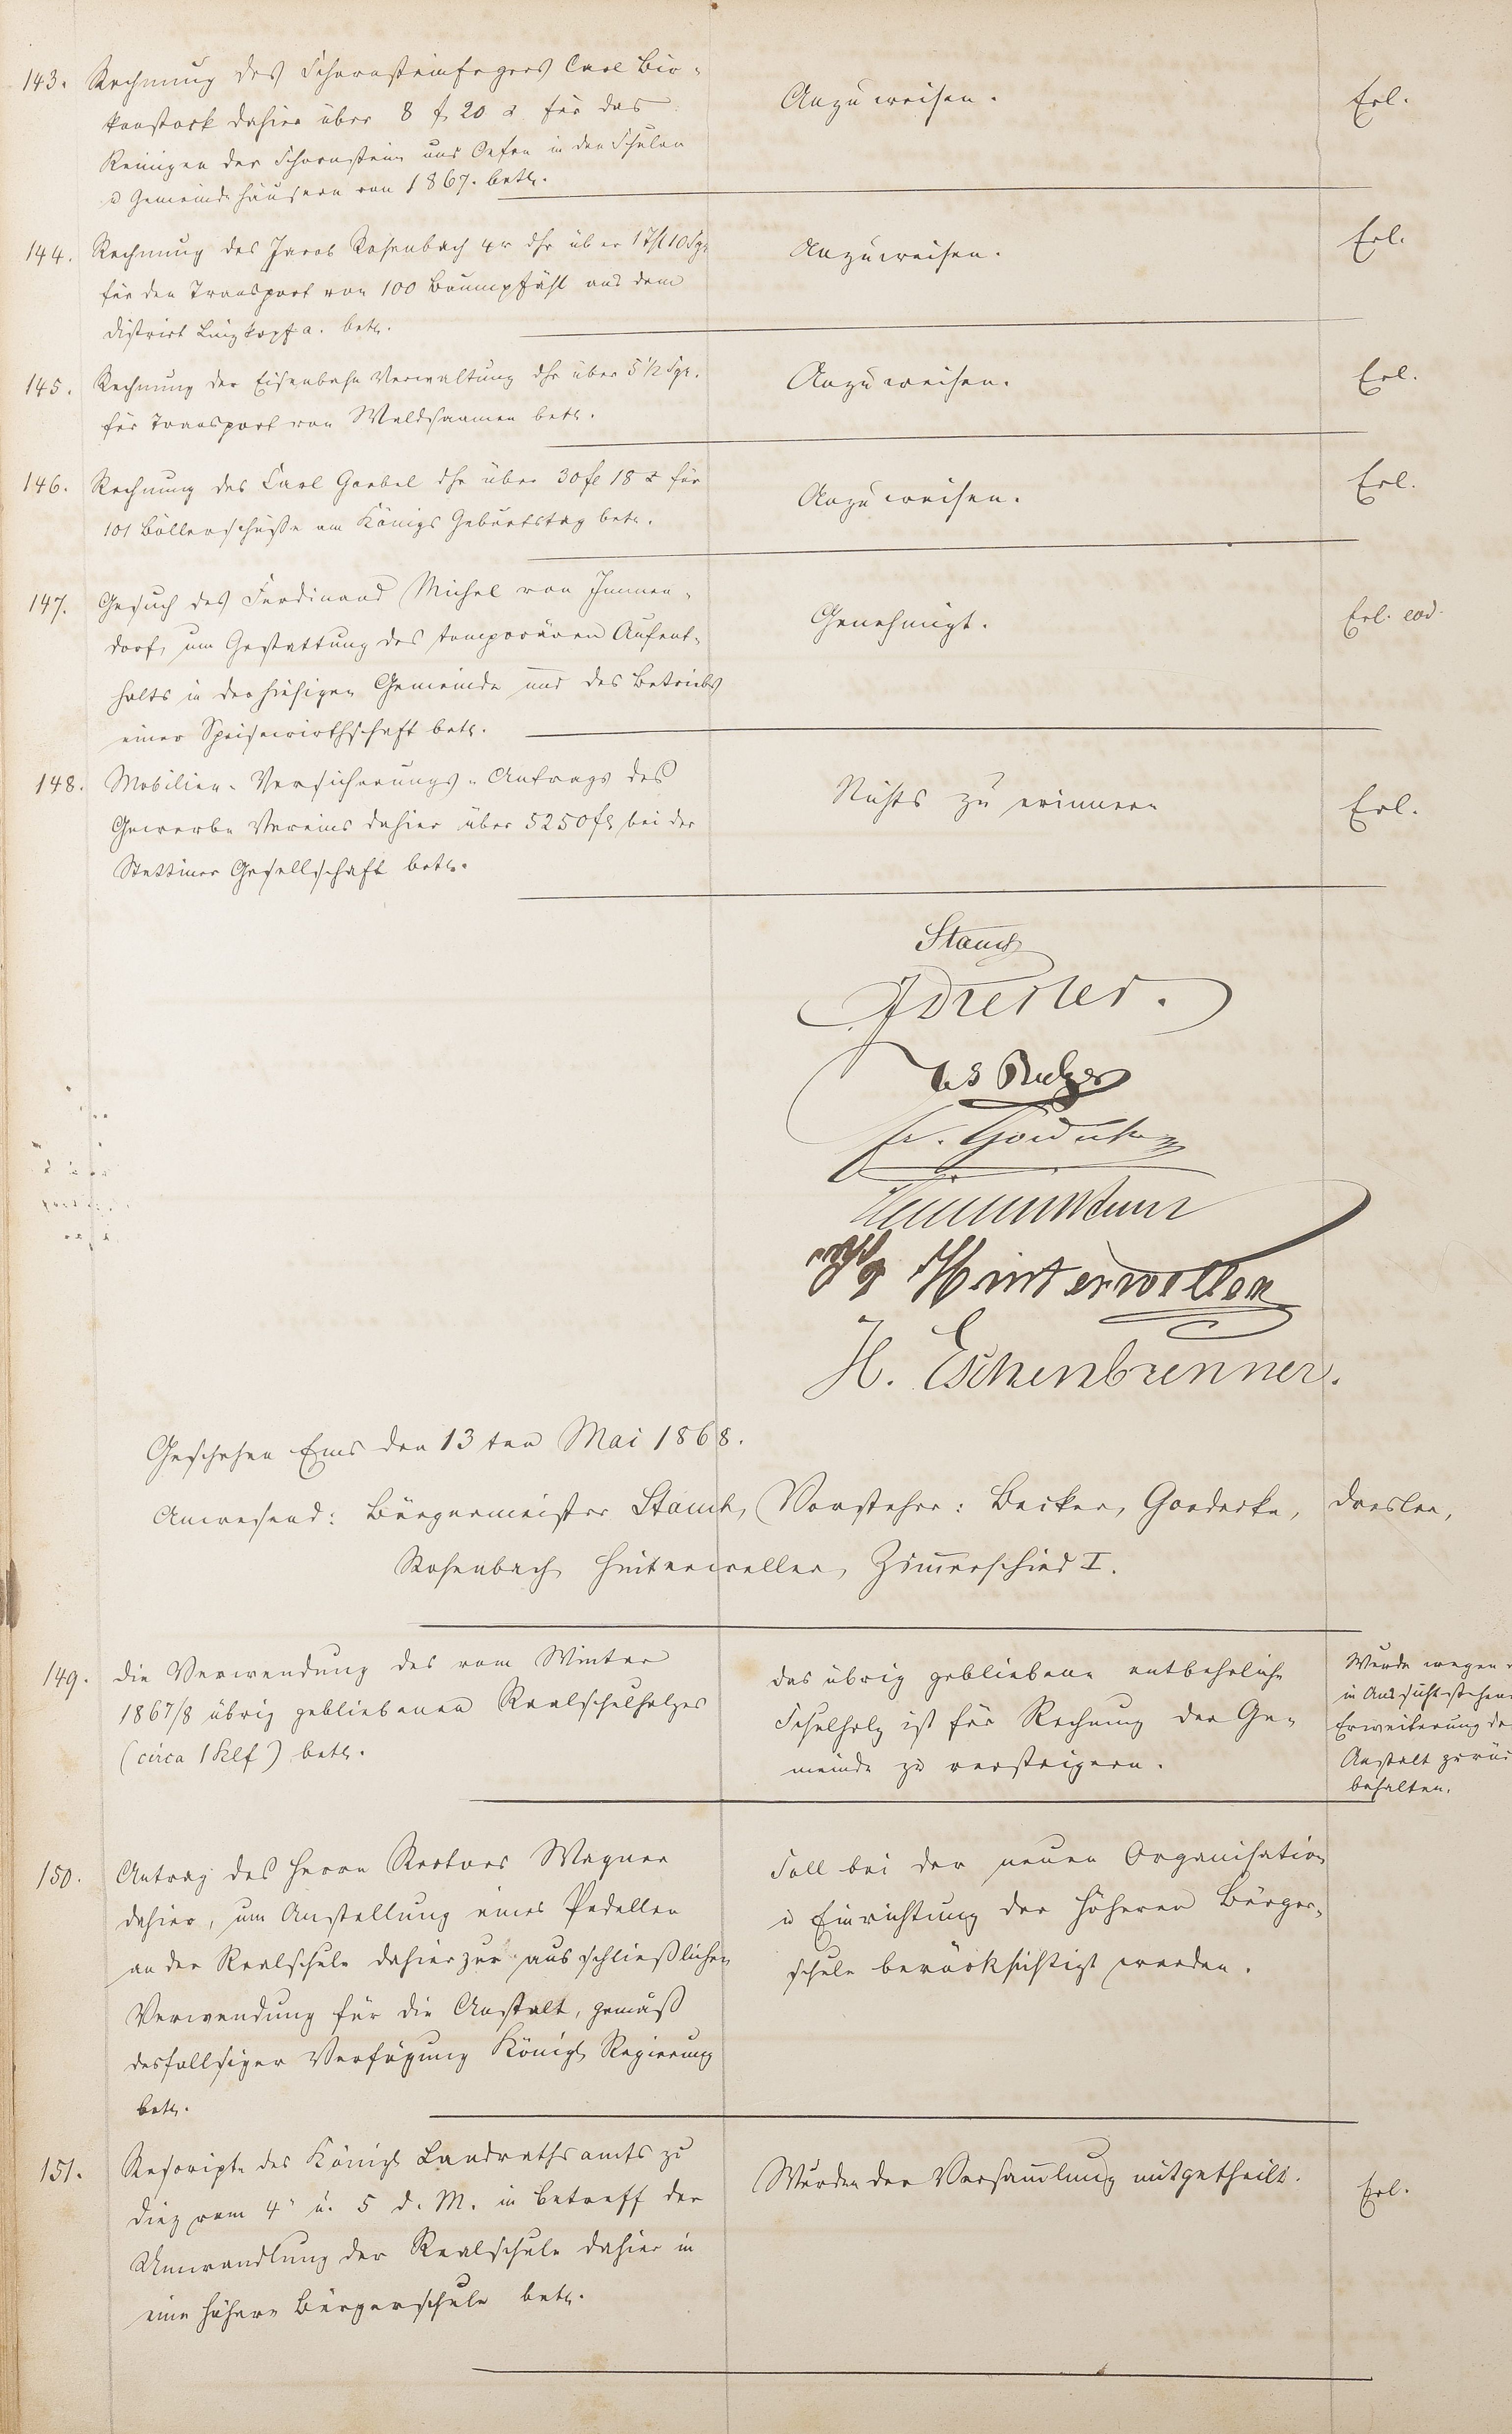 143. Rechnung des Schornsteinfegers Carl Bir-
kenstock dahier über 8 f. 20 x für das
Reinigen der Schornstein und Oefen in den Schulen
u Gemeindehäusern von 1867. betr.
Anzuweisen.
Erl.
144. Rechnung des Jacob Rosenbach 4r dhr über 1 Thl 10 Sgr
für den Transport von 100 Baumpfähl aus dem
District betr.
Anzuweisen.
Erl.
145. Rechnung der Eisenbahn Verwaltung dhr über 5 1/2 Sgr.
für Transport von Waldsaamen betr.
Anzuweisen.
Erl.
146. Rechnung des Carl Goebel dhr über 30 fl 18 x für
101 Böllerschüsse am Königs Geburtstag betr.
Anzuweisen.
Erl.
147. Gesuch des Ferdinand Michel von Immen-
dorf, um Gestattung des temporären Aufent-
halts in der hiesigen Gemeinde und des Betriebs
einer Speisewirthschaft betr.
Genehmigt.
Erl. eod.
148. Mobilien-Versicherungs-Antrags des
Gewerbe Vereins dahier über 5250 fl bei der
Stettiner Gesellschaft betr.
Nichts zu erinnern
Erl.
Stauch
Dresler.
Fr. Goedecke
Hinterweller
H. Eschenbrenner.
Geschehen Ems den 13 ten Mai 1868.
Anwesend: Bürgermeister Stauch, Vorsteher: Becker, Goedecke, Dresler,
Rosenbach, Hinterweller, Zimmerschied I.
149. die Verwendung des vom Winter
1867/8 übrig gebliebenen Realschulholzes
(circa 1 Klf) betr.
das übrig gebliebene entbehrliche
Schulholz ist für Rechnung der Ge-
meinde zu versteigern.
Wurde wegen
in Aussicht stehen
Erweiterung de
Anstalt zurü
behalten.
150. Antrag des Herrn Rectors Wagner
dahier, um Anstellung eines Pedellen
an der Realschule dahier zur ausschließlichen
Verwendung für die Anstalt, gemäß
desfallsiger Verfügung Königl Regierung
betr.
Soll bei der neuen Organisation
u Einrichtung der höheren Bürger-
schule berücksichtigt werden.
151. Rescripte des Königl Landrathsamts zu
Diez vom 4' u. 5 d. M. in Betreff der
Umwandlung der Realschule dahier in
eine höhere Bürgerschule betr.
Wurden der Versam̅lung mitgetheilt.
Erl.